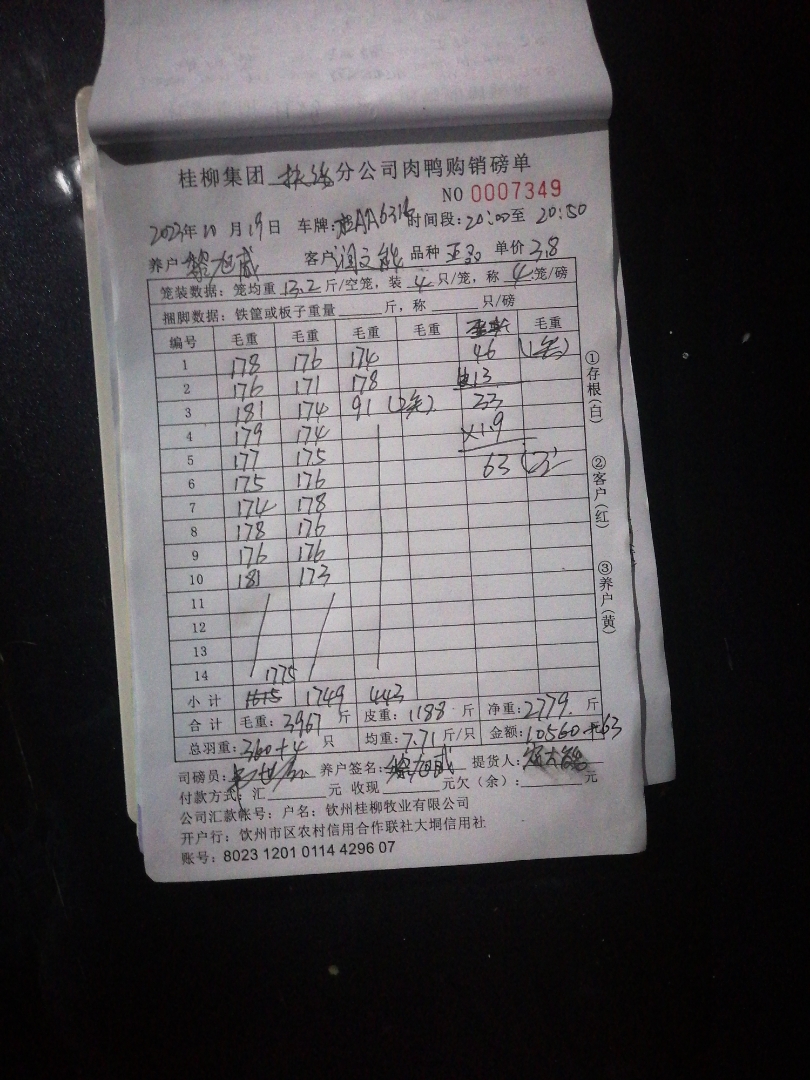 桂柳集团 分公司肉鸭购销磅单
NO 0007349
2023年10月19日 车牌: 时间段:20:00至20:50
养户 客户 品种 单价3.8
笼装数据:笼均重13.2斤/空笼,装4只/笼,称4笼/磅
捆脚数据:铁筐或板子重量 斤,称 只/磅
编号 毛重 毛重 毛重 毛重 毛重
1 178 176 174 46
2 176 171 178 13
3 181 174 91 33
4 179 174 ×1.9
5 177 175 63
6 175 176
7 174 178
8 178 176
9 176 176
10 181 173
11
12
13
14 1775
小计 1749 443
合计 毛重:3967斤 皮重:1188斤 净重:2779斤
总羽重:360+4只 均重:7.71斤/只 金额:10560+63
司磅员: 养户签名: 提货人:
付款方式:汇 元 收现 元欠(余): 元
公司汇款帐号:户名:钦州桂柳牧业有限公司
开户行:钦州市区农村信用合作联社大垌信用社
账号:8023 1201 0114 4296 07
①存根(白)
②客户(红)
③养户(黄)